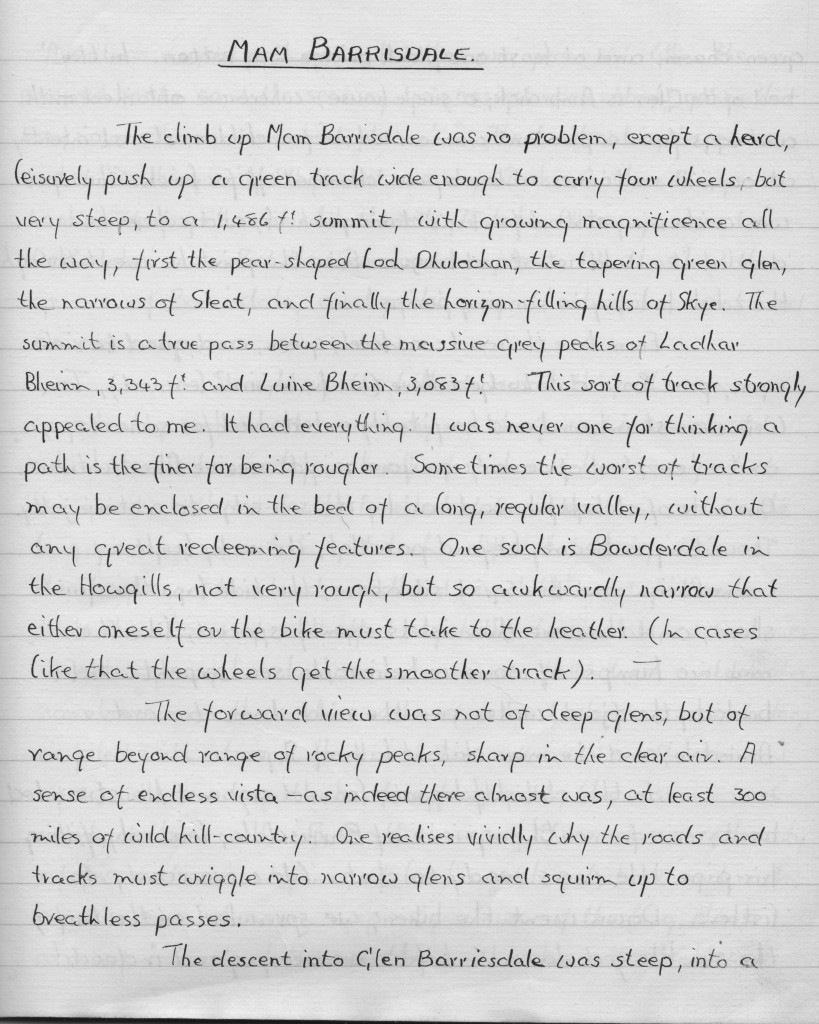 MAM BARRISDALE.
The climb up Mam Barrisdale was no problem, except a hard,
leisurely push up a green track wide enough to carry four wheels, but
very steep, to a 1,486 ft. summit, with growing magnificence all
the way, first the pear-shaped Loch Dhulochan, the tapering green glen,
the narrows of Sleat, and finally the horizon-filling hills of Skye. The
summit is a true pass between the massive grey peaks of Ladhar
Bheinn, 3,343 ft. and Luine Bheinn, 3,083 ft. This sort of track strongly
appealed to me. It had everything. I was never one for thinking a
path is the finer for being rougher. Sometimes the worst of tracks
may be enclosed in the bed of a long, regular valley, without
any great redeeming features. One such is Bowderdale in
the Howgills, not very rough, but so awkwardly narrow that
either oneself or the bike must take to the heather. (In cases
like that the wheels get the smoother track). —
The forward view was not of deep glens, but of
range beyond range of rocky peaks, sharp in the clear air. A
sense of endless vista – as indeed there almost was, at least 300
miles of wild hill-country. One realises vividly why the roads and
tracks must wriggle into narrow glens and squirm up to
breathless passes.
The descent into Glen Barriesdale was steep, into a